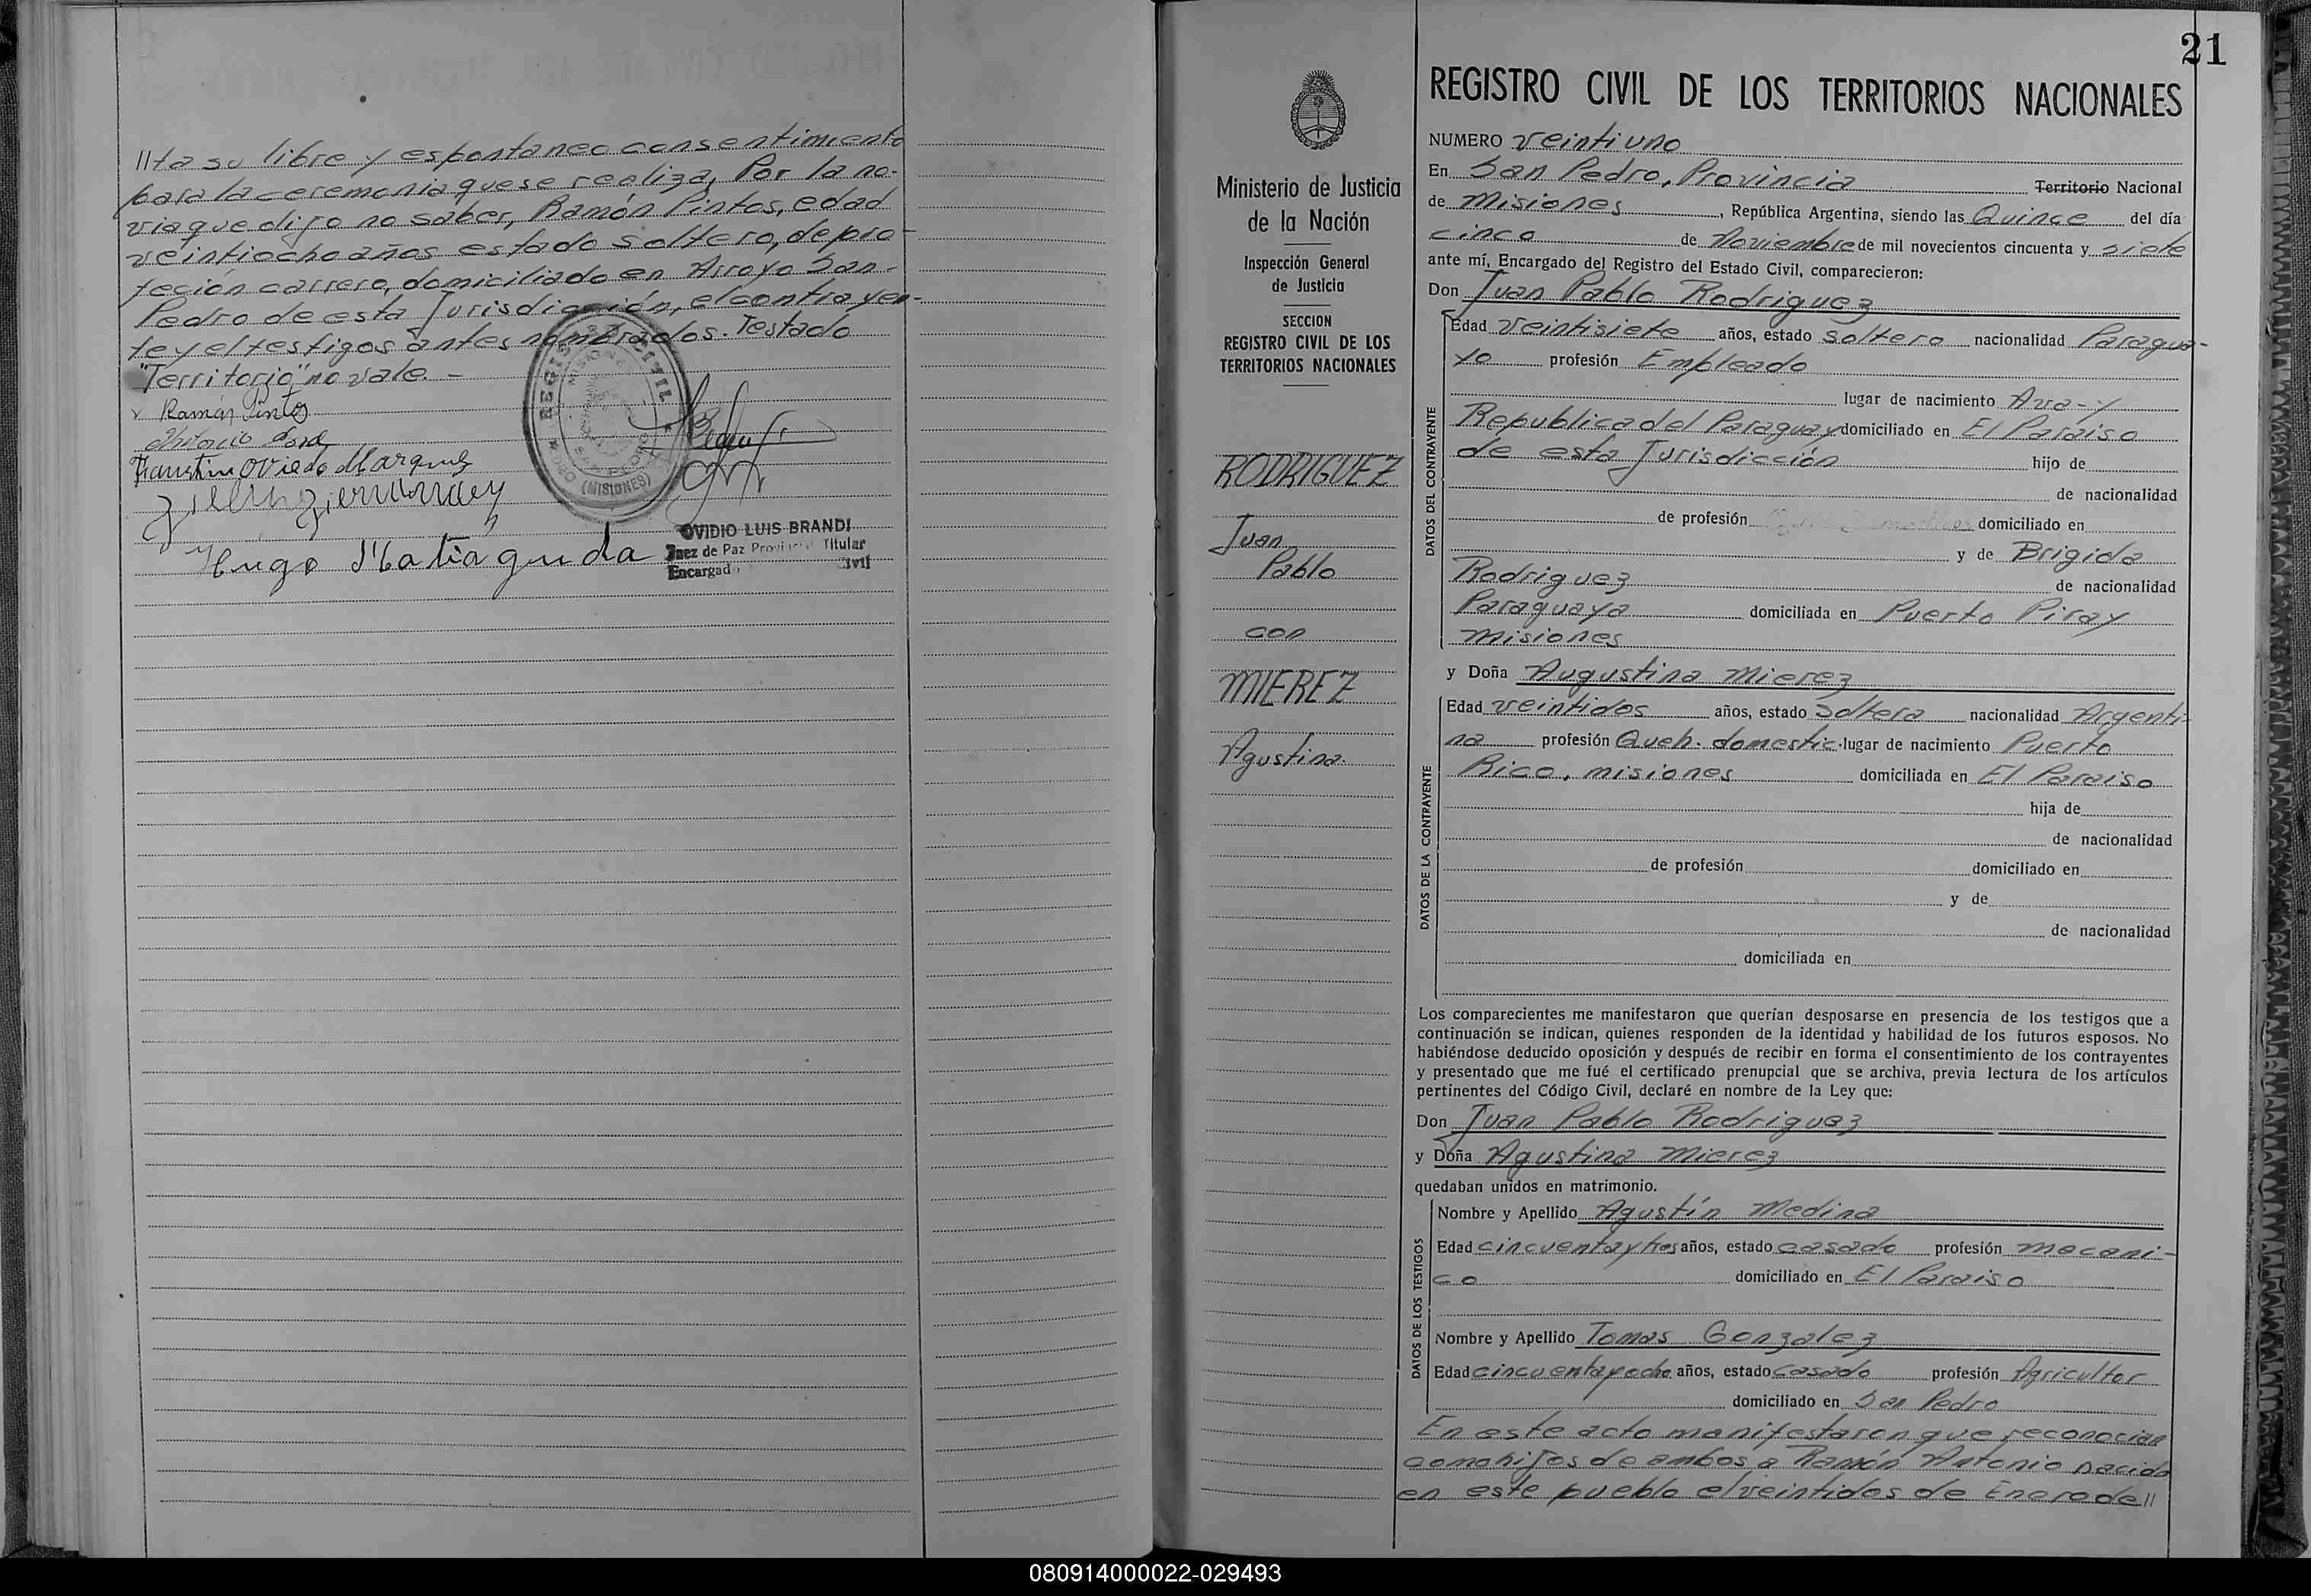 //ta su libre y espontaneo consentimiento
para la ceremonia que se realiza, Por la no-
via que dijo no saber, Ramón Pintos, edad
veintiocho años estado soltero, de pro-
feción carrero, domiciliado en Arroyo San-
Pedro de esta Jurisdicción, el contrayen-
te y el testigos antes nombrados. Testado
"Territorio" no vale. -
Ramón Pintos
Faustino Oviedo Marques
Hugo Matiaguda
REGISTRO CIVIL
SAN PEDRO
(MISIONES)
OVIDIO LUIS BRANDI
Juez de Paz Provincial Titular
Encargado Civil
21
Ministerio de Justicia
de la Nación
Inspección General
de Justicia
SECCION
REGISTRO CIVIL DE LOS
TERRITORIOS NACIONALES
RODRIGUEZ
Juan
Pablo
con
MIEREZ
Agustina.
REGISTRO CIVIL DE LOS TERRITORIOS NACIONALES
NUMERO veintiuno
En San Pedro, Provincia Territorio Nacional
de Misiones, República Argentina, siendo las Quince del día
cinco de Noviembre de mil novecientos cincuenta y siete
ante mí, Encargado del Registro del Estado Civil, comparecieron:
Don Juan Pablo Rodriguez
DATOS DEL CONTRAYENTE
Edad veintisiete años, estado soltero nacionalidad Paragua-
yo profesión Empleado
lugar de nacimiento Ava-y
Republica del Paraguay domiciliado en El Paraiso
de esta Jurisdicción hijo de
de nacionalidad
de profesión domiciliado en
y de Brigida
Rodriguez de nacionalidad
Paraguaya domiciliada en Puerto Piray
Misiones
y Doña Augustina Mierez
DATOS DE LA CONTRAYENTE
Edad veintidos años, estado soltera nacionalidad Argenti-
na profesión Queh. domestic. lugar de nacimiento Puerto
Rico, misiones domiciliada en El Paraiso
hija de
de nacionalidad
de profesión domiciliado en
y de
de nacionalidad
domiciliada en
Los comparecientes me manifestaron que querían desposarse en presencia de los testigos que a
continuación se indican, quienes responden de la identidad y habilidad de los futuros esposos. No
habiéndose deducido oposición y después de recibir en forma el consentimiento de los contrayentes
y presentado que me fué el certificado prenupcial que se archiva, previa lectura de los artículos
pertinentes del Código Civil, declaré en nombre de la Ley que:
Don Juan Pablo Rodriguez
y Doña Agustina Mierez
quedaban unidos en matrimonio.
DATOS DE LOS TESTIGOS
Nombre y Apellido Agustín Medina
Edad cincuenta y tres años, estado casado profesión mecani-
co domiciliado en El Paraiso
Nombre y Apellido Tomas Gonzalez
Edad cincuenta y ocho años, estado casado profesión Agricultor
domiciliado en San Pedro
En este acto manifestaron que reconocian
como hijos de ambos a Ramón Antonio nacido
en este pueblo el veintidos de Enero de //
080914000022-029493